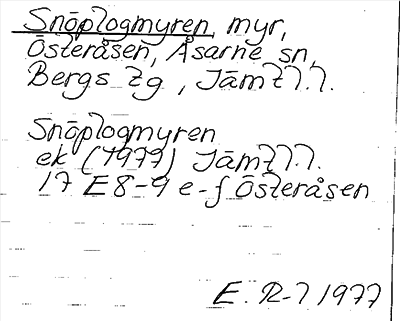 Snöplogmyren, myr,
Österåsen, Åsarne sn,
Bergs tg, Jämtl.
Snöplogmyren
ek (1977) Jämtl.
17 E 8-9 e-f Österåsen
E. R-l 1977